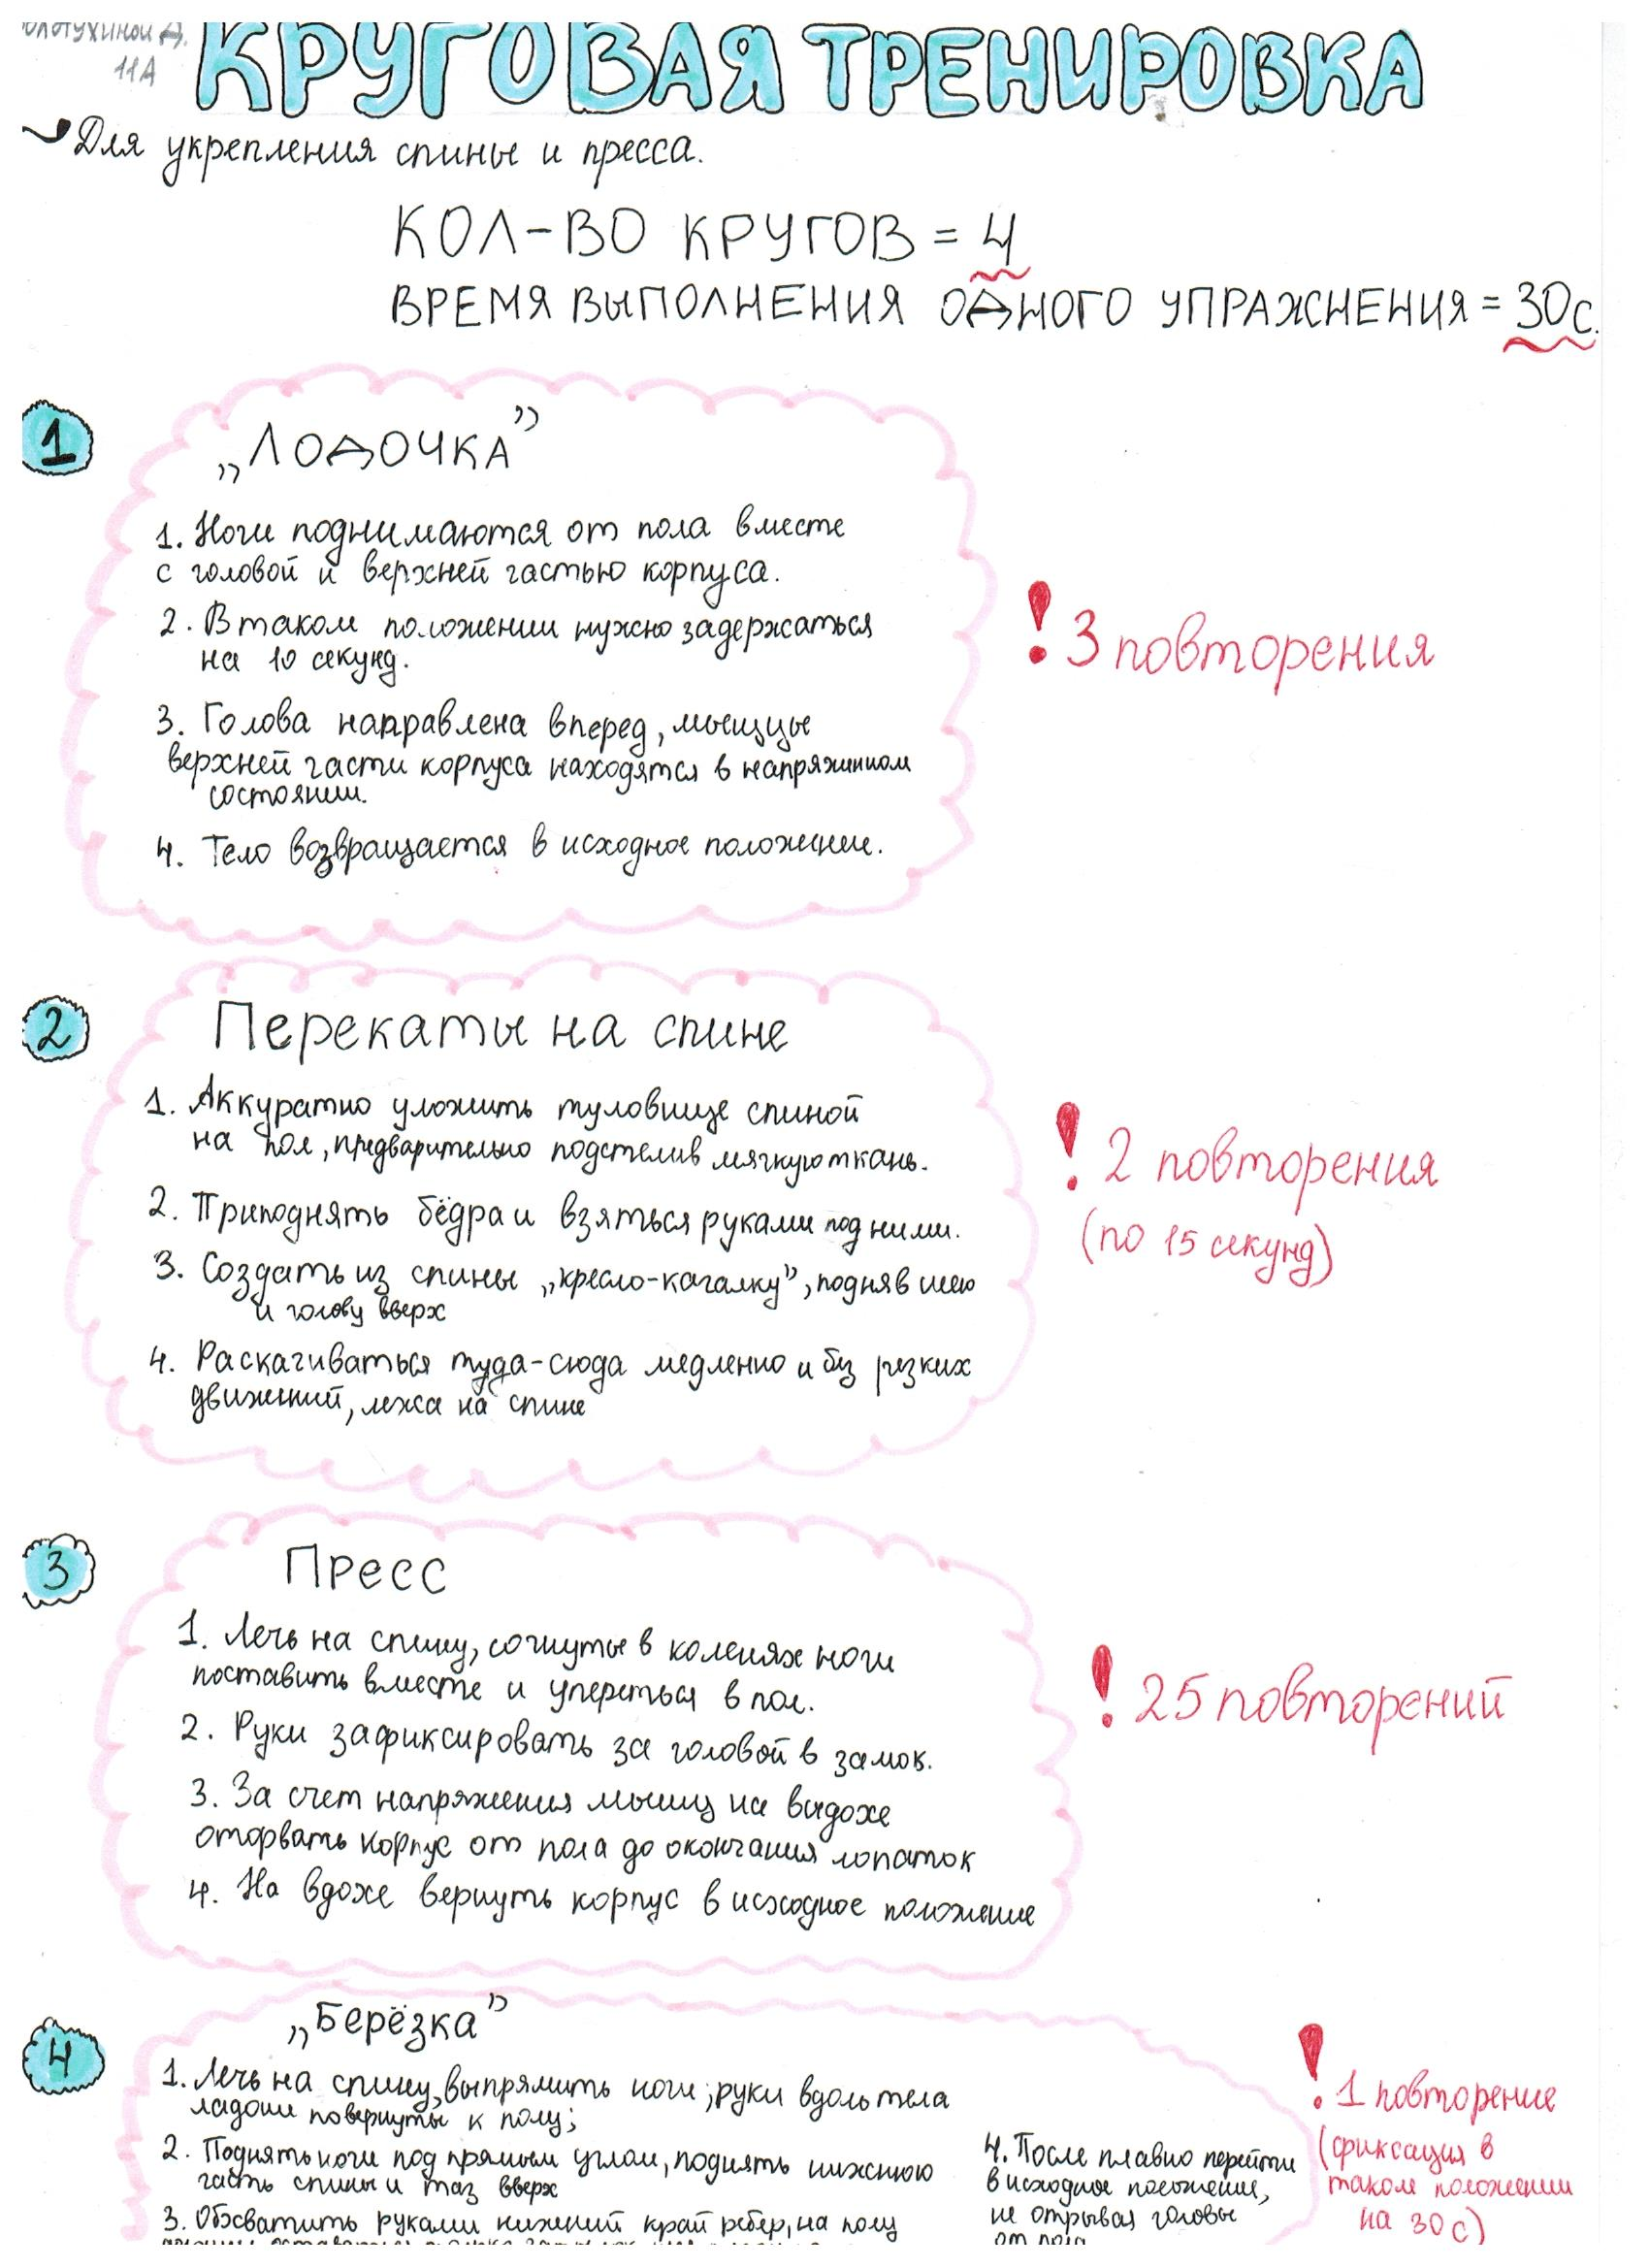 11А
КРУГОВАЯ ТРЕНИРОВКА
Для укрепления спины и пресса.
КОЛ-ВО КРУГОВ = 4
ВРЕМЯ ВЫПОЛНЕНИЯ ОДНОГО УПРАЖНЕНИЯ = 30с.
1
„ЛОДОЧКА”
1. Ноги поднимаются от пола вместе
с головой и верхней частью корпуса.
2. В таком положении нужно задержаться
на 10 секунд.
3. Голова направлена вперед, мышцы
верхней части корпуса находятся в напряжинном
состоянии.
4. Тело возвращается в исходное положение.
! 3 повторения
2
Перекаты на спине
1. Аккуратно уложить туловище спиной
на пол, предварительно подстелив мягкую ткань.
2. Приподнять бёдра и взяться руками под ними.
3. Создать из спины „кресло-качалку”, подняв шею
и голову вверх
4. Раскачиваться туда-сюда медленно и без резких
движений, лежа на спине
! 2 повторения
(по 15 секунд)
3
Пресс
1. Лечь на спину, согнутые в коленях ноги
поставить вместе и упереться в пол.
2. Руки зафиксировать за головой в замок.
3. За счет напряжения мышц на выдохе
оторвать корпус от пола до окончания лопаток
4. На вдохе вернуть корпус в исходное положение
! 25 повторений
4
„Берёзка”
1. Лечь на спину, выпрямить ноги; руки вдоль тела
ладони повернуты к полу;
2. Поднять ноги под прямым углом, поднять нижнюю
часть спины и таз вверх
3. Обхватить руками нижний край ребер, на полу
4. После плавно перейти
в исходное положение,
не отрывая головы
от пола
! 1 повторение
(фиксация в
таком положении
на 30 с)